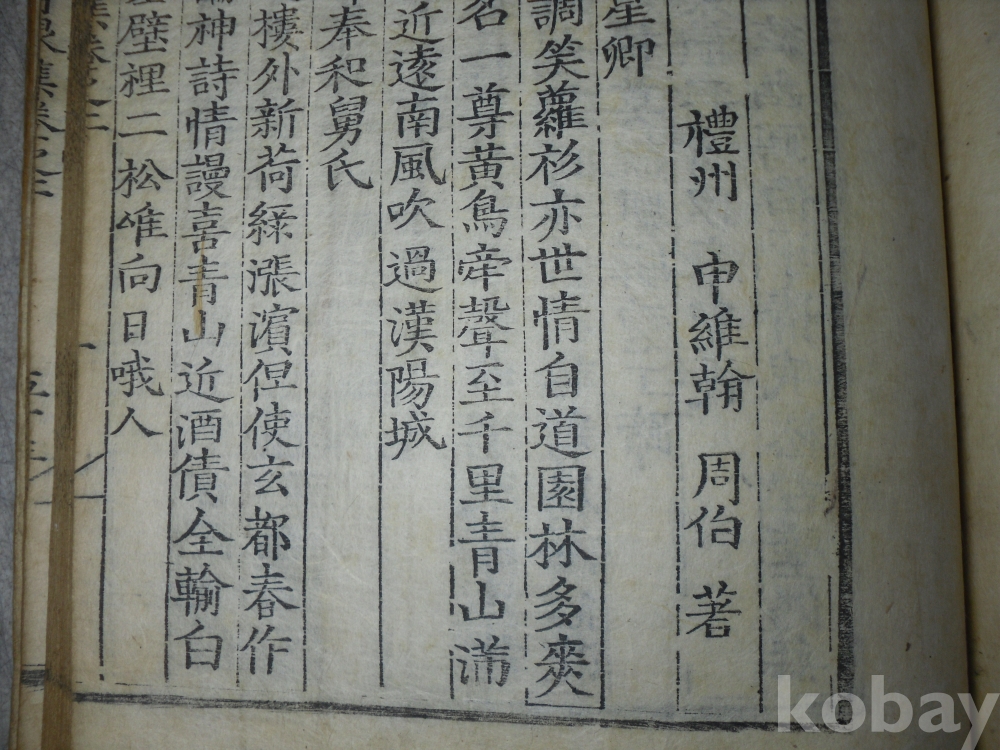 禮州 申維翰 周伯 著
星卿
調笑蘿衫亦世情自道園林多爽
名一尊黃鳥牽聲至千里青山滿
近遠南風吹過漢陽城
奉和舅氏
樓外新荷綠漲濱但使玄都春作
神詩情謾喜青山近酒債全輸白
壁裡二松唯向日哦人
集卷之三
泉集卷之三
kobay